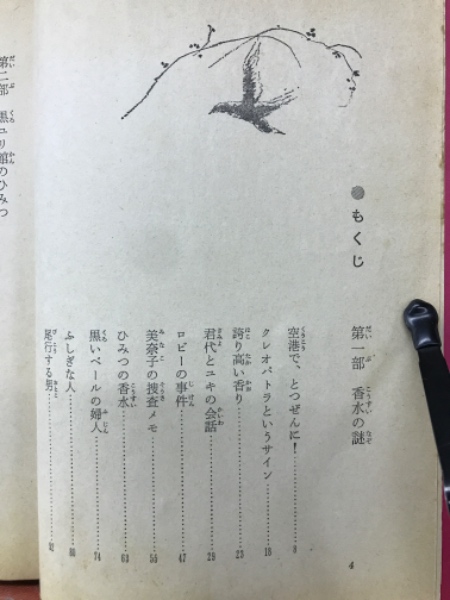 もくじ
第一部 香水の謎
空港で、とつぜんに! 8
クレオパトラというサイン 18
誇り高い香り 23
君代とユキの会話 29
ロビーの事件 47
美奈子の捜査メモ 55
ひみつの香水 63
黒いベールの婦人 74
ふしぎな人 80
尾行する男 92
4
第二部 黒ユリ館のひみつ